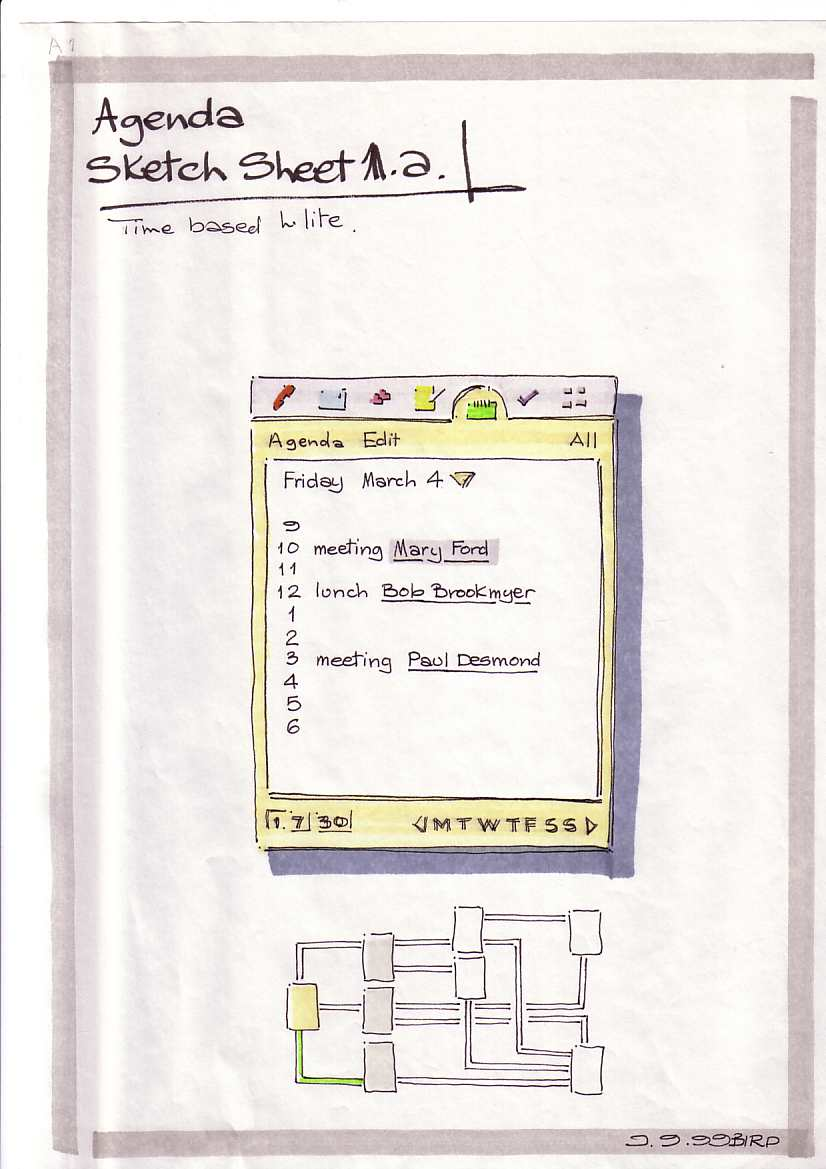 A1
Agenda
Sketch Sheet 1.a.
Time based hi lite.
Agenda Edit All
Friday March 4
9
10 meeting Mary Ford
11
12 lunch Bob Brookmyer
1
2
3 meeting Paul Desmond
4
5
6
1. 7 30 M T W T F S S
9.9.99BIRD